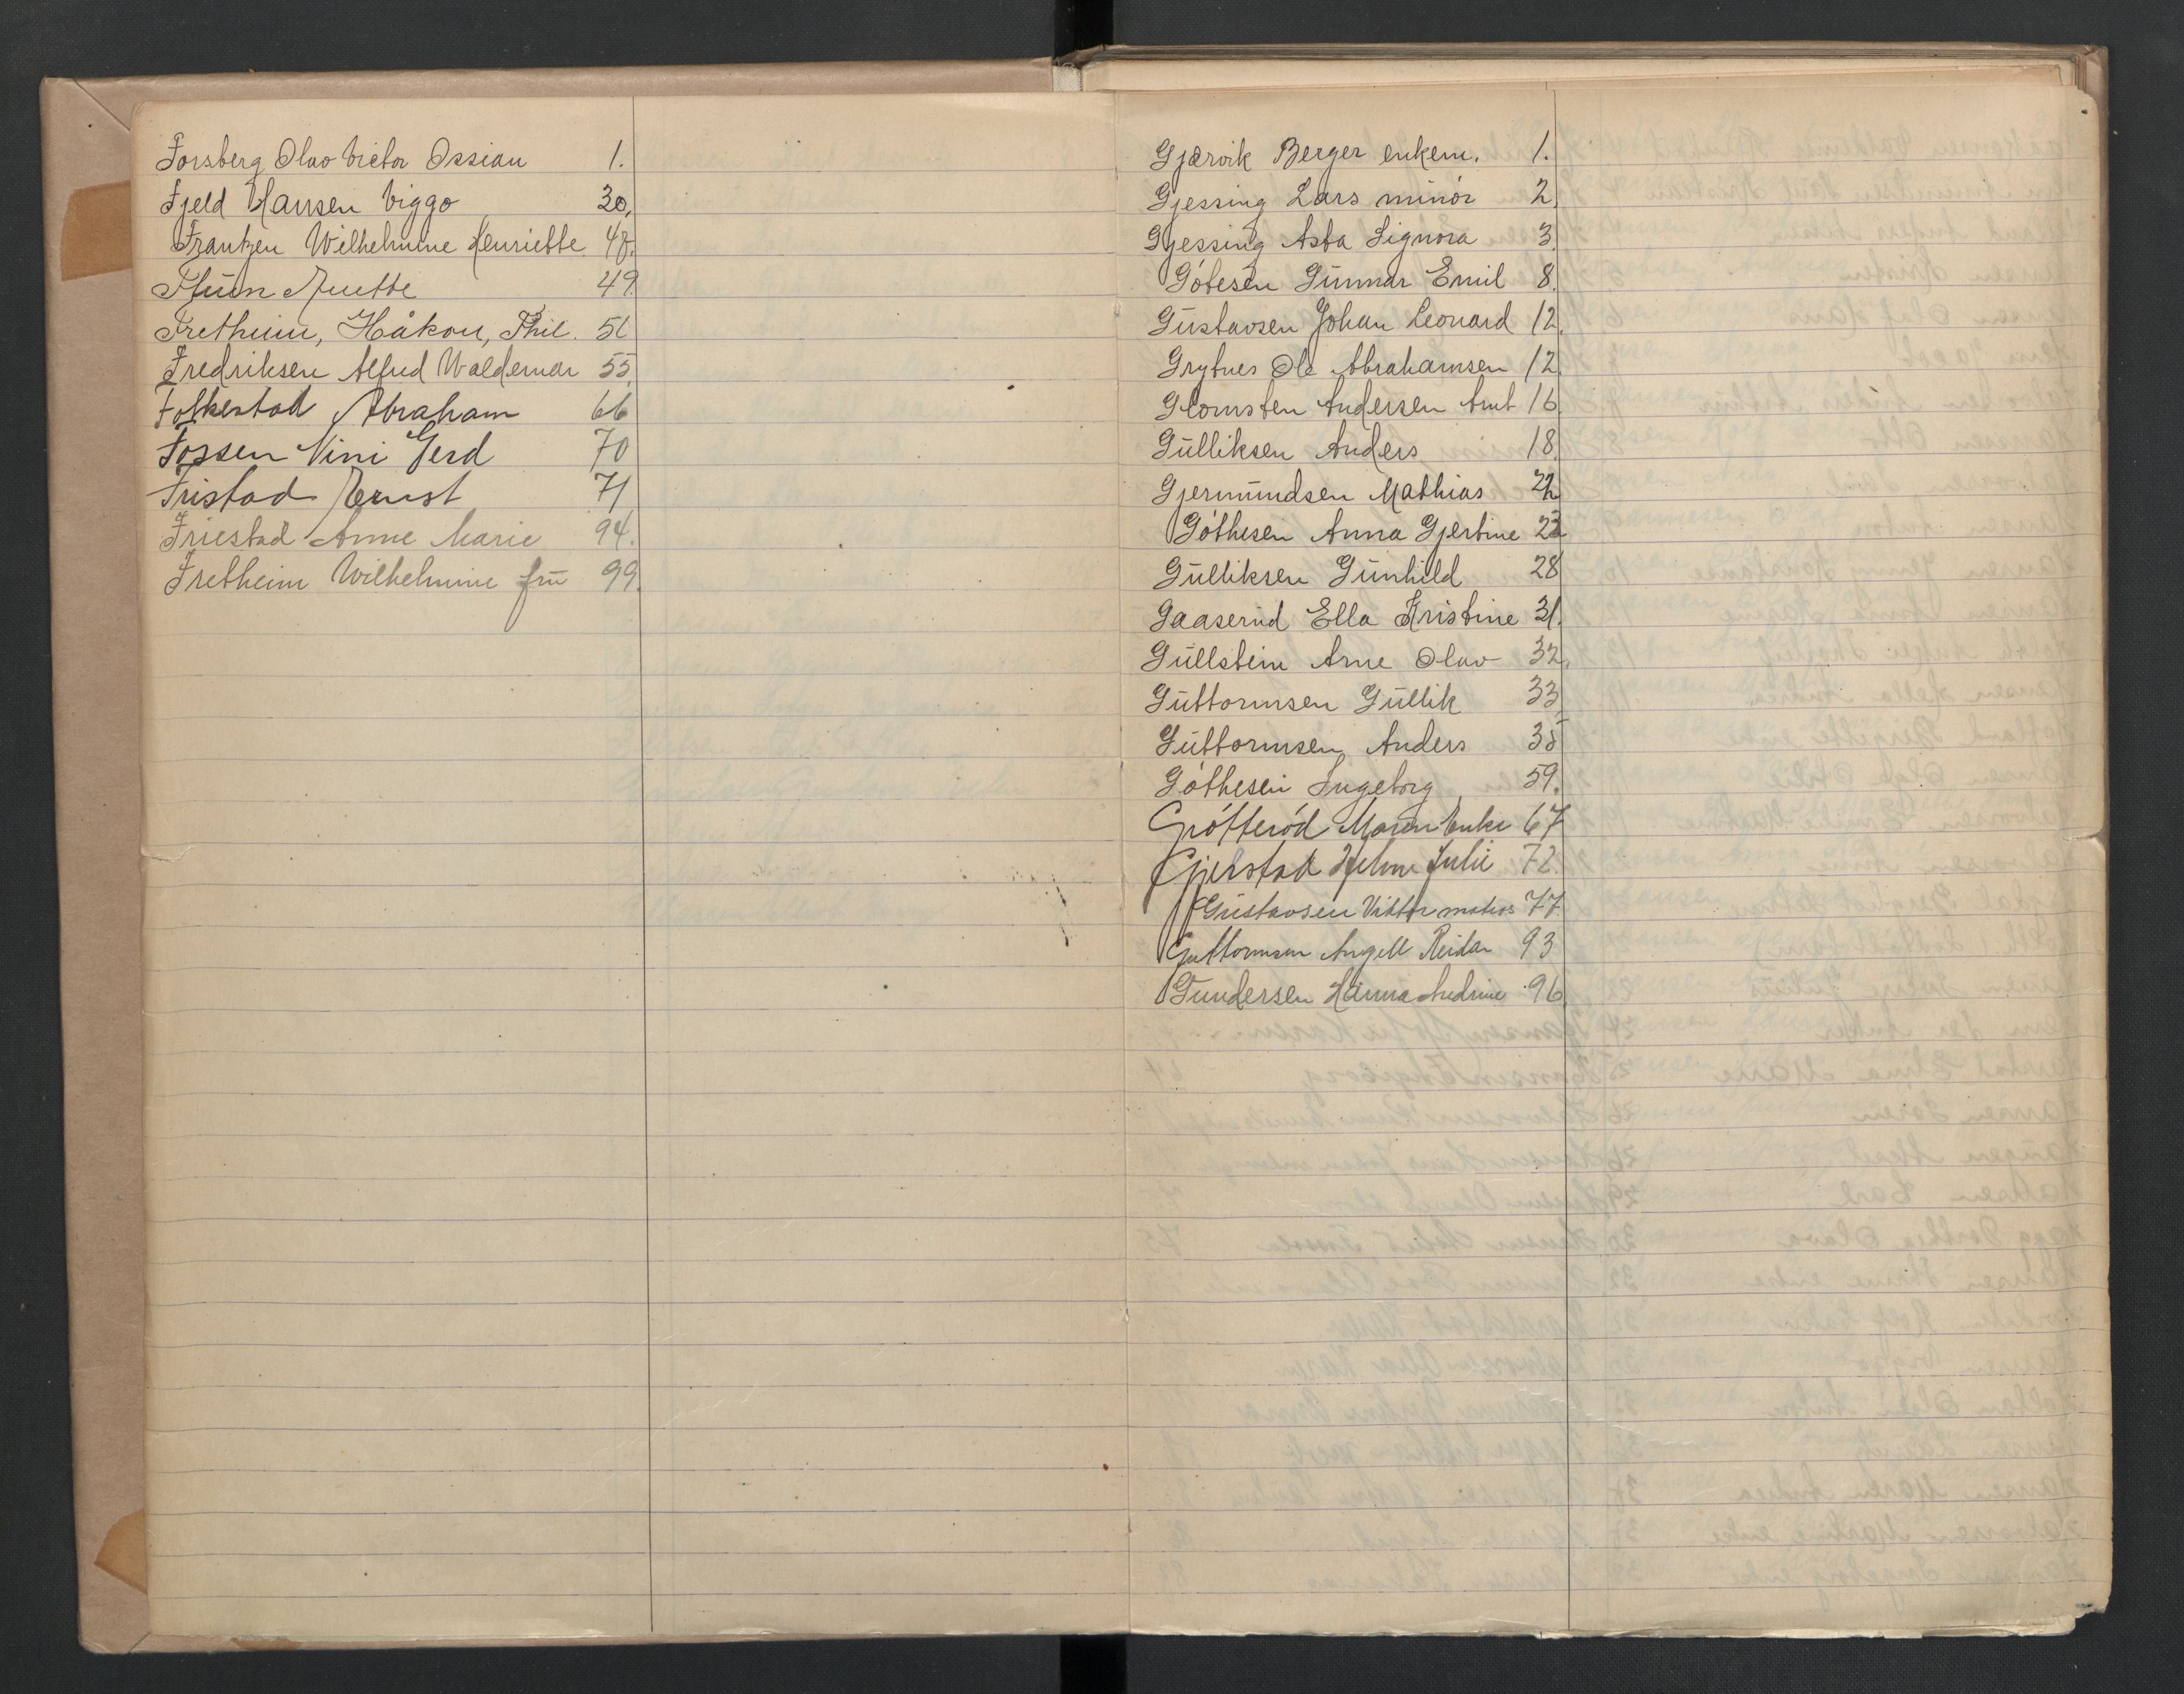 Forsberg Olav Victor Ossian 1.
Fjeld Hansen Viggo 30.
Frantzen Wilhelmine Henriette 48.
Anette 49.
Fretheim, Håkon, Thil. 51
Fredriksen Alfred Waldemar 55.
Folkestad Abraham 66
Fossen Vini Gerd 70
Fristad Ernst 71
Friestad Anne Marie 94.
Fretheim Wilhelmine frü 99.
Gjærvik Berger enkem. 1.
Gjessing Lars minör 2.
Gjessing Asta Signora 3.
Götesen Günnar Emil 8.
Güstavsen Johan Leonard 12.
Grytnes Ole Abrahamsen 12.
Glomsten Andersen Arnt 16.
Gülliksen Anders 18.
Gjermündsen Mathias 22
Göthesen Anna Gjertine 23
Gülliksen Günhild 28
Gaaserud Ella Kristine 31.
Güllstein Arne Olav 32.
Güttormsen Güllik 33.
Güttormsen Anders 35
Göthesen Ingeborg 59.
Gröfteröd Maren Enke 67
Gjerstad Julie 72.
Gustavsen Viktor matros 77
Guttormsen Angell Reidar 93
Gundersen Hanna Andrine 96